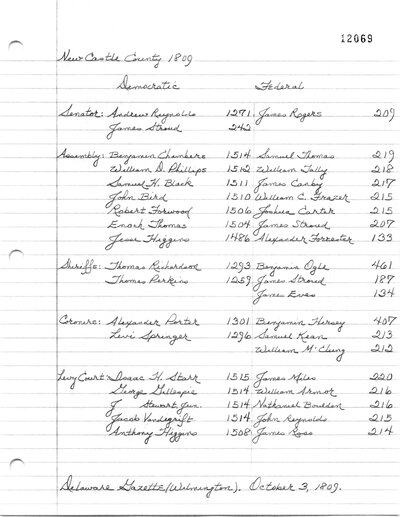 12069
New Castle County 1809
Democratic Federal
Senator: Andrew Reynolds 1271 James Rogers 209
James Stroud 242
Assembly: Benjamin Chambers 1514 Samuel Thomas 219
William D. Phillips 1512 William Tally 218
Samuel H. Black 1511 James Canby 217
John Bird 1510 William C. Frazer 215
Robert Forwood 1506 Joshua Carter 215
Enock Thomas 1504 James Stroud 207
Jesse Higgins 1486 Alexander Forrester 133
Sheriffs: Thomas Richardson 1293 Benjamin Ogle 461
Thomas Perkins 1259 James Stroud 187
James Eves 134
Coroners: Alexander Porter 1301 Benjamin Hersey 407
Levi Springer 1296 Samuel Kean 213
William McClung 212
Levy Court: Isaac H. Starr 1515 James Miles 220
George Gillespie 1514 William Armor 216
J Stewart, Jun. 1514 Nathaniel Boulden 216
Jacob Vandegrift 1514 John Reynolds 215
Anthony Higgins 1508 James Ross 214
Delaware Gazette (Wilmington). October 3, 1809.